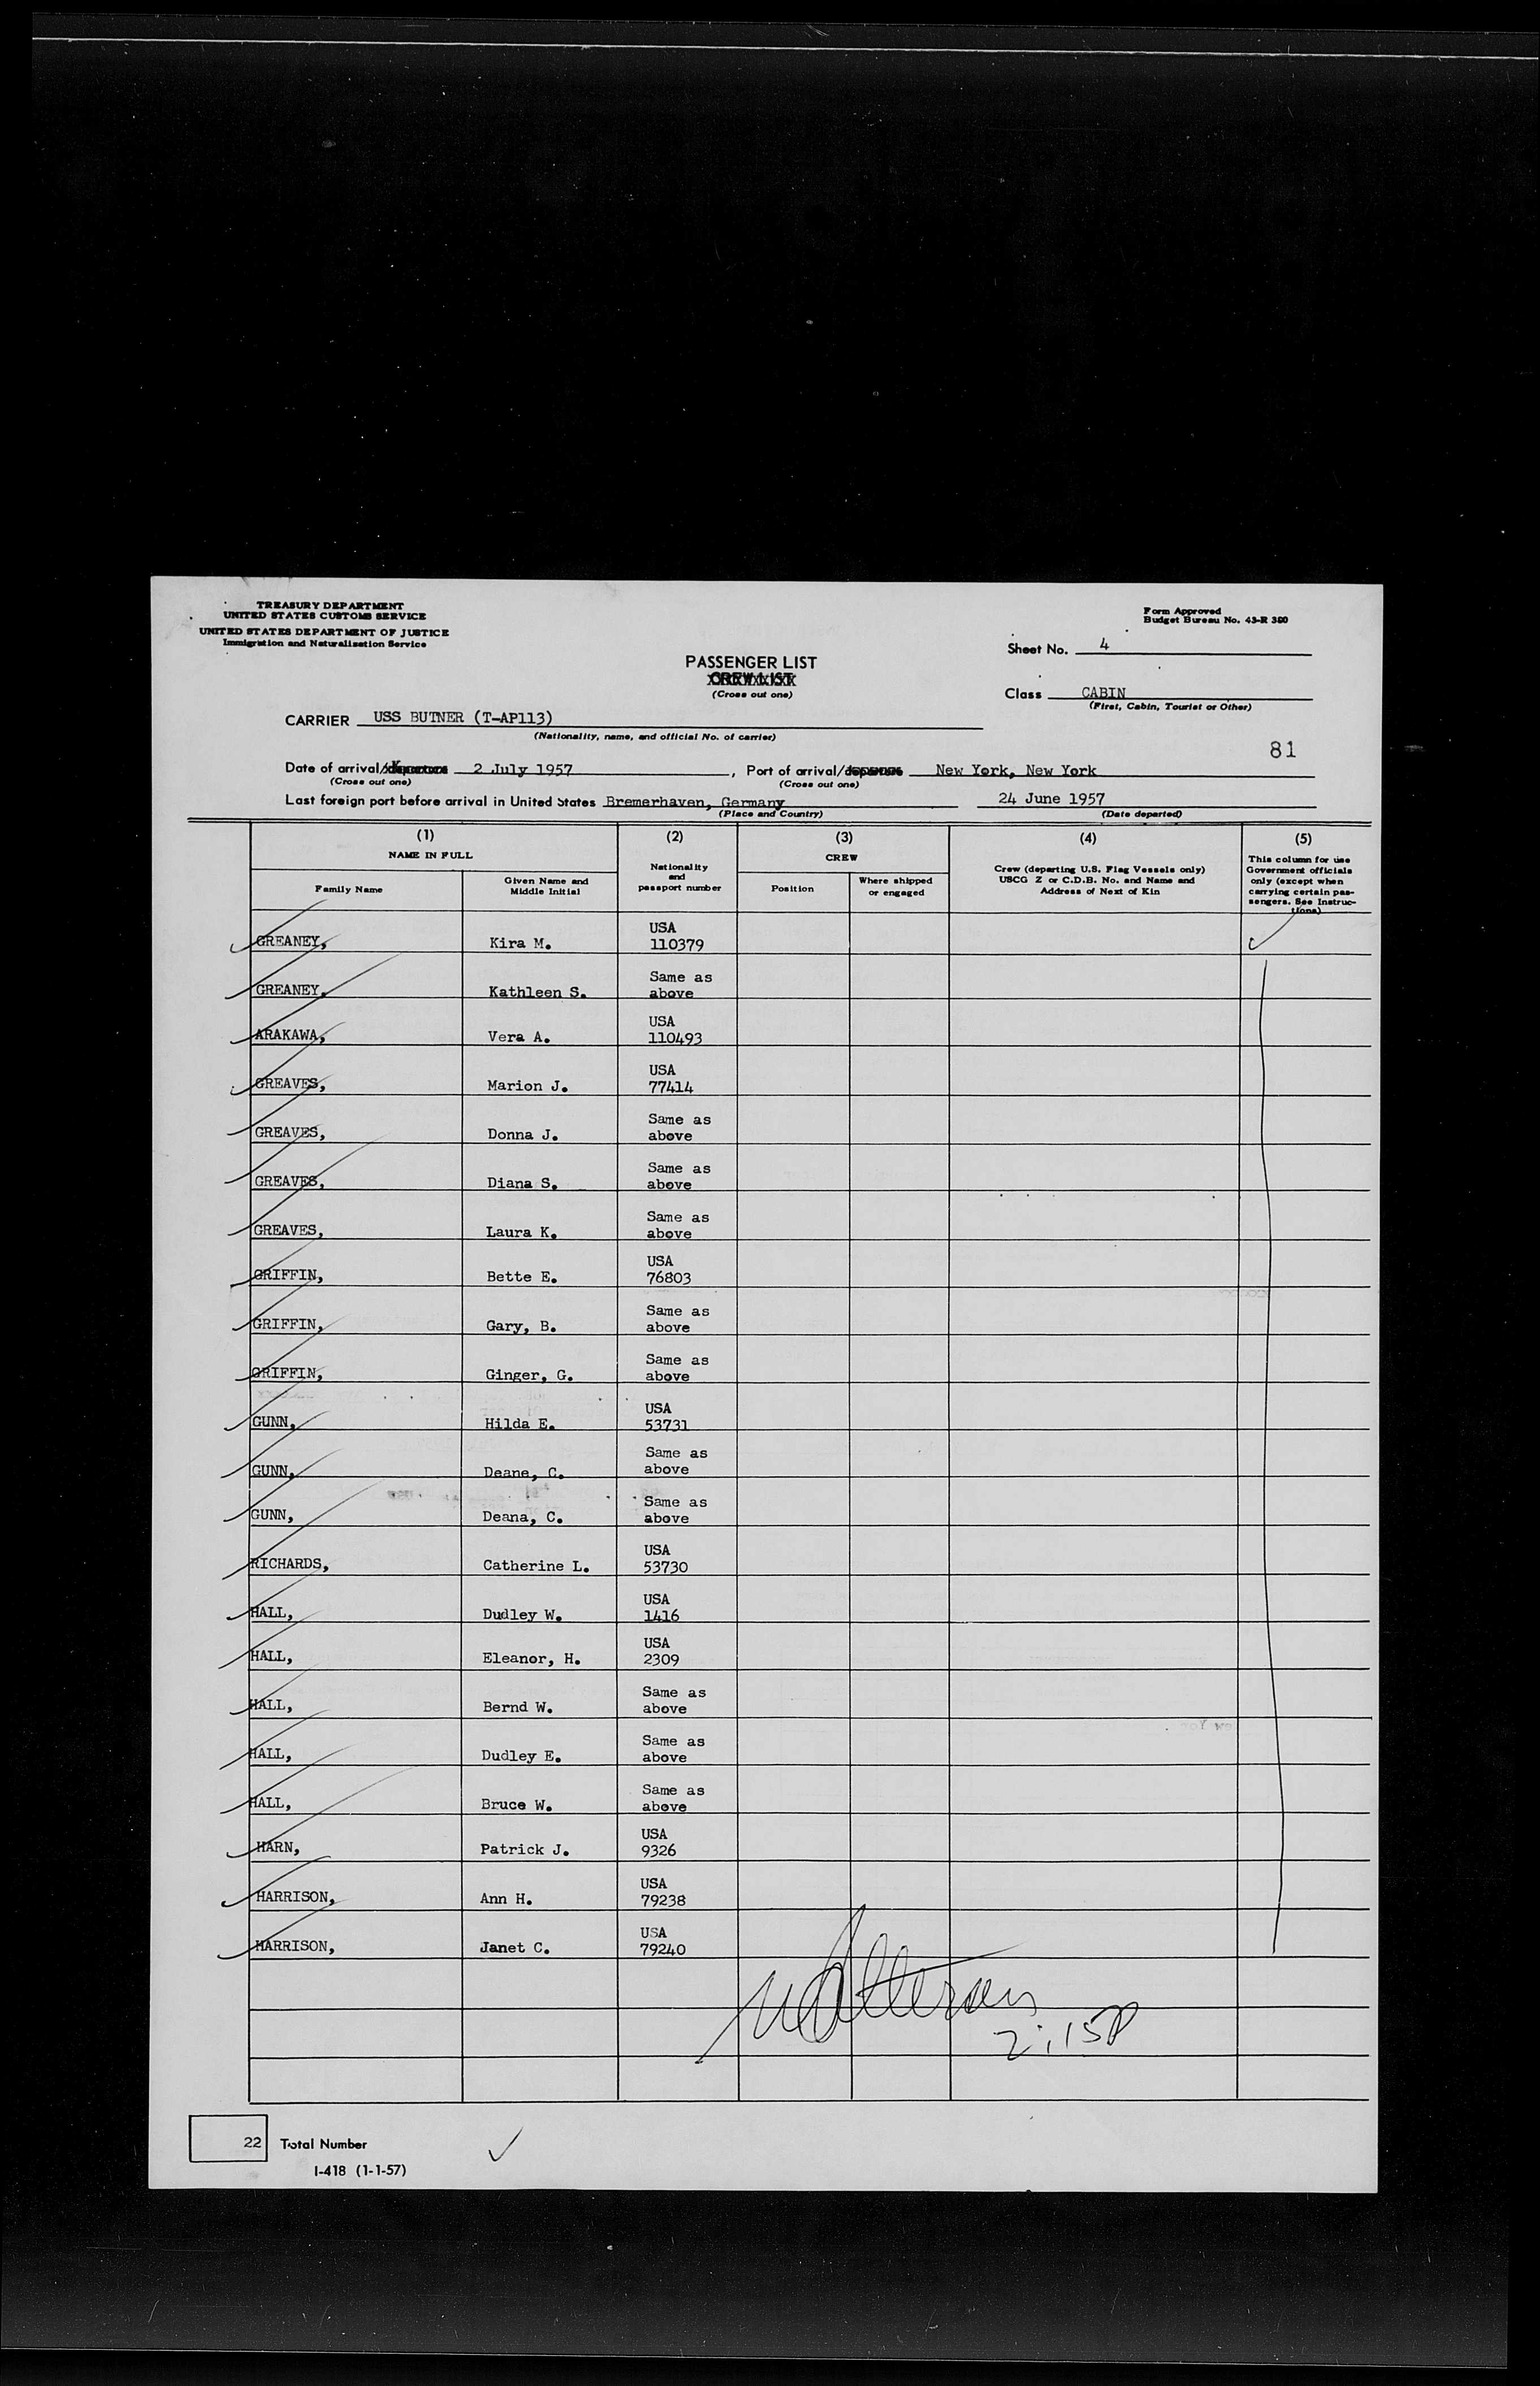 TREASURY DEPARTMENT
UNITED STATES CUSTOMS SERVICE
UNITED STATES DEPARTMENT OF JUSTICE
Immigration and Naturalization Service
Form Approved
Budget Bureau No. 43-R 380
Sheet No. 4
PASSENGER LIST
CREW LIST
(Cross out one)
Class CABIN
(First, Cabin, Tourist or Other)
CARRIER USS BUTNER (T-AP113)
(Nationality, name, and official No. of carrier)
81
Date of arrival/departure 2 July 1957, Port of arrival/departure New York, New York
(Cross out one) (Cross out one)
Last foreign port before arrival in United States Bremerhaven, Germany 24 June 1957
(Place and Country) (Date departed)
(1) (2) (3) (4) (5)
NAME IN FULL
Family Name
Given Name and
Middle Initial
Nationality
and
passport number
CREW
Position
Where shipped
or engaged
Crew (departing U.S. Flag Vessels only)
USCG Z or C.D.B. No. and Name and
Address of Next of Kin
This column for use
Government officials
only (except when
carrying certain pas-
sengers. See Instruc-
tions)
USA
GREANEY, Kira M. 110379
Same as
GREANEY, Kathleen S. above
USA
ARAKAWA, Vera A. 110493
USA
GREAVES, Marion J. 77414
Same as
GREAVES, Donna J. above
Same as
GREAVES, Diana S. above
Same as
GREAVES, Laura K. above
USA
GRIFFIN, Bette E. 76803
Same as
GRIFFIN, Gary, B. above
Same as
GRIFFIN, Ginger, G. above
USA
GUNN, Hilda E. 53731
Same as
GUNN, Deane, C. above
Same as
GUNN, Deana, C. above
USA
RICHARDS, Catherine L. 53730
USA
HALL, Dudley W. 1416
USA
HALL, Eleanor, H. 2309
Same as
HALL, Bernd W. above
Same as
HALL, Dudley E. above
Same as
HALL, Bruce W. above
USA
HARN, Patrick J. 9326
USA
HARRISON, Ann H. 79238
USA
HARRISON, Janet C. 79240
2:15P
22 Total Number
I-418 (1-1-57)